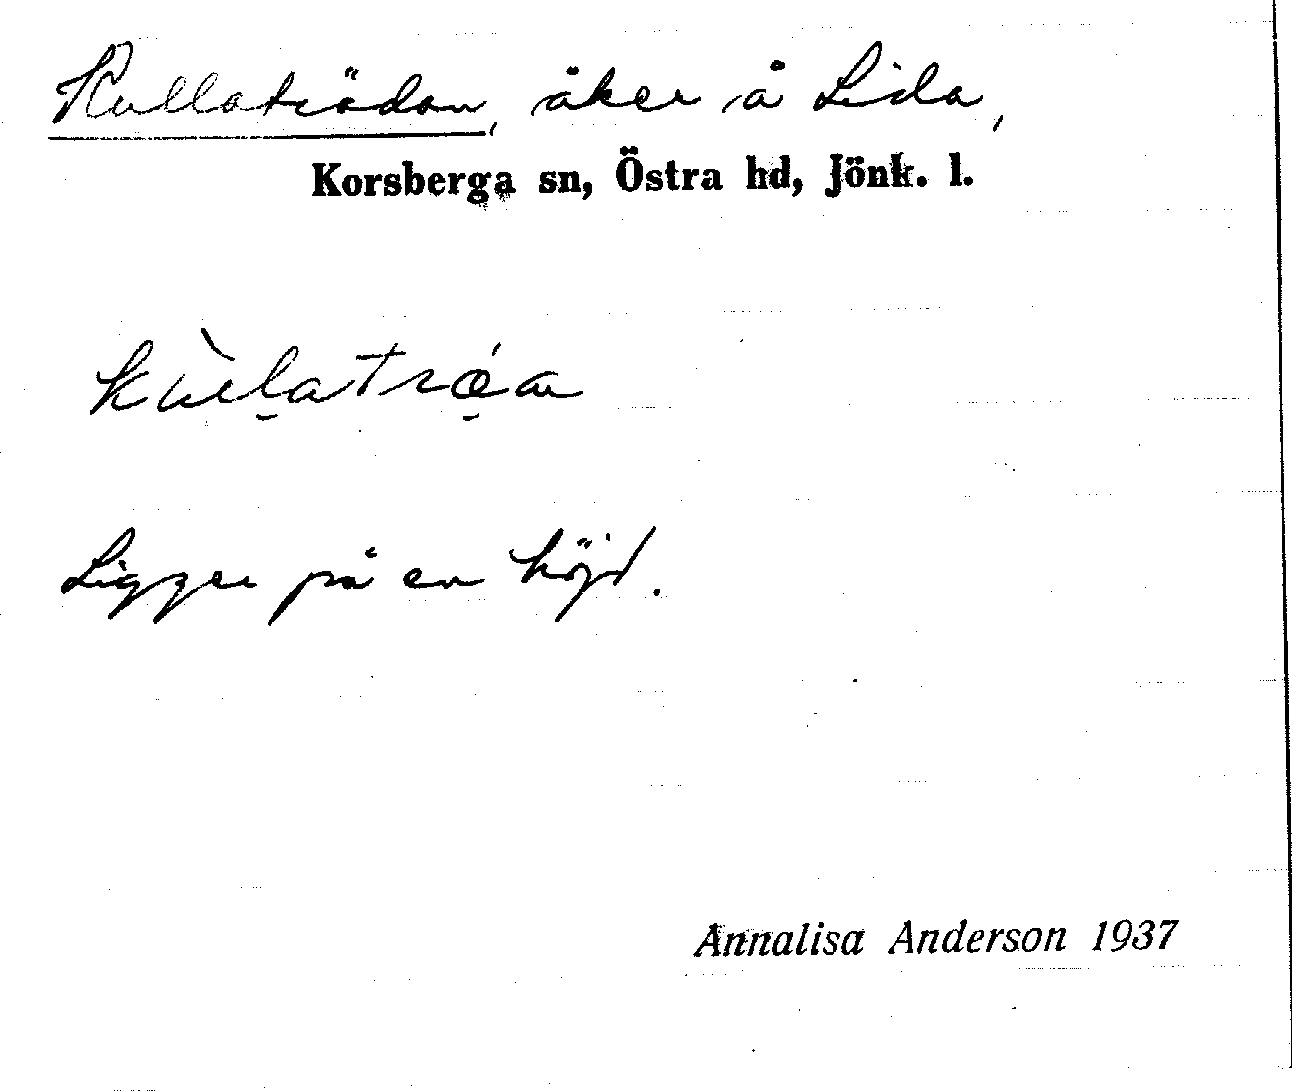 Kullaträdan, åker å Lida,
Korsberga sn, Östra hd, Jönk. l.
Ligger på en höjd.
Annalisa Anderson 1937